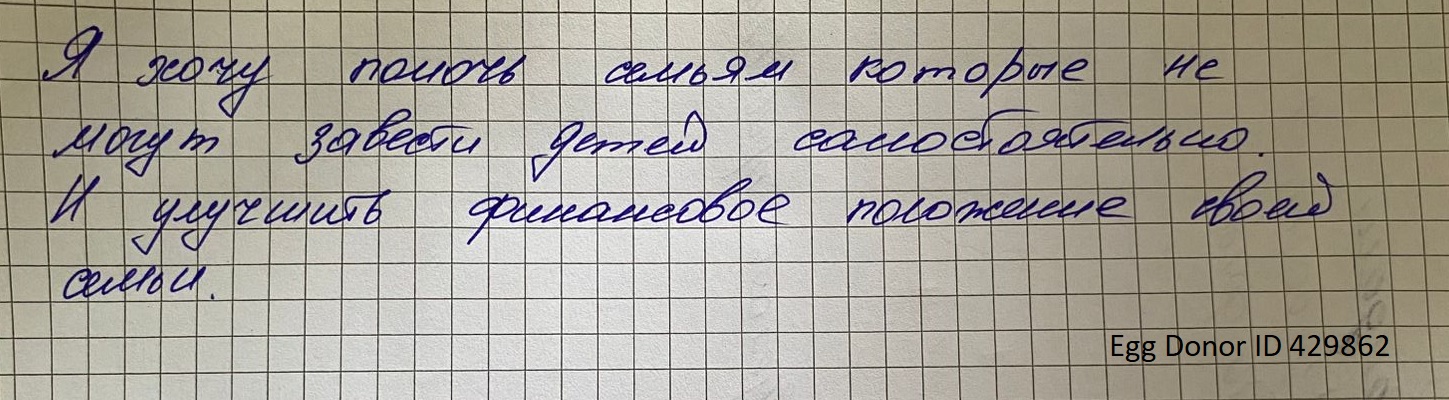 Я хочу помочь семьям которые не
могут завести детей самостоятельно.
И улучшить финансовое положение своей
семьи.
Egg Donor ID 429862